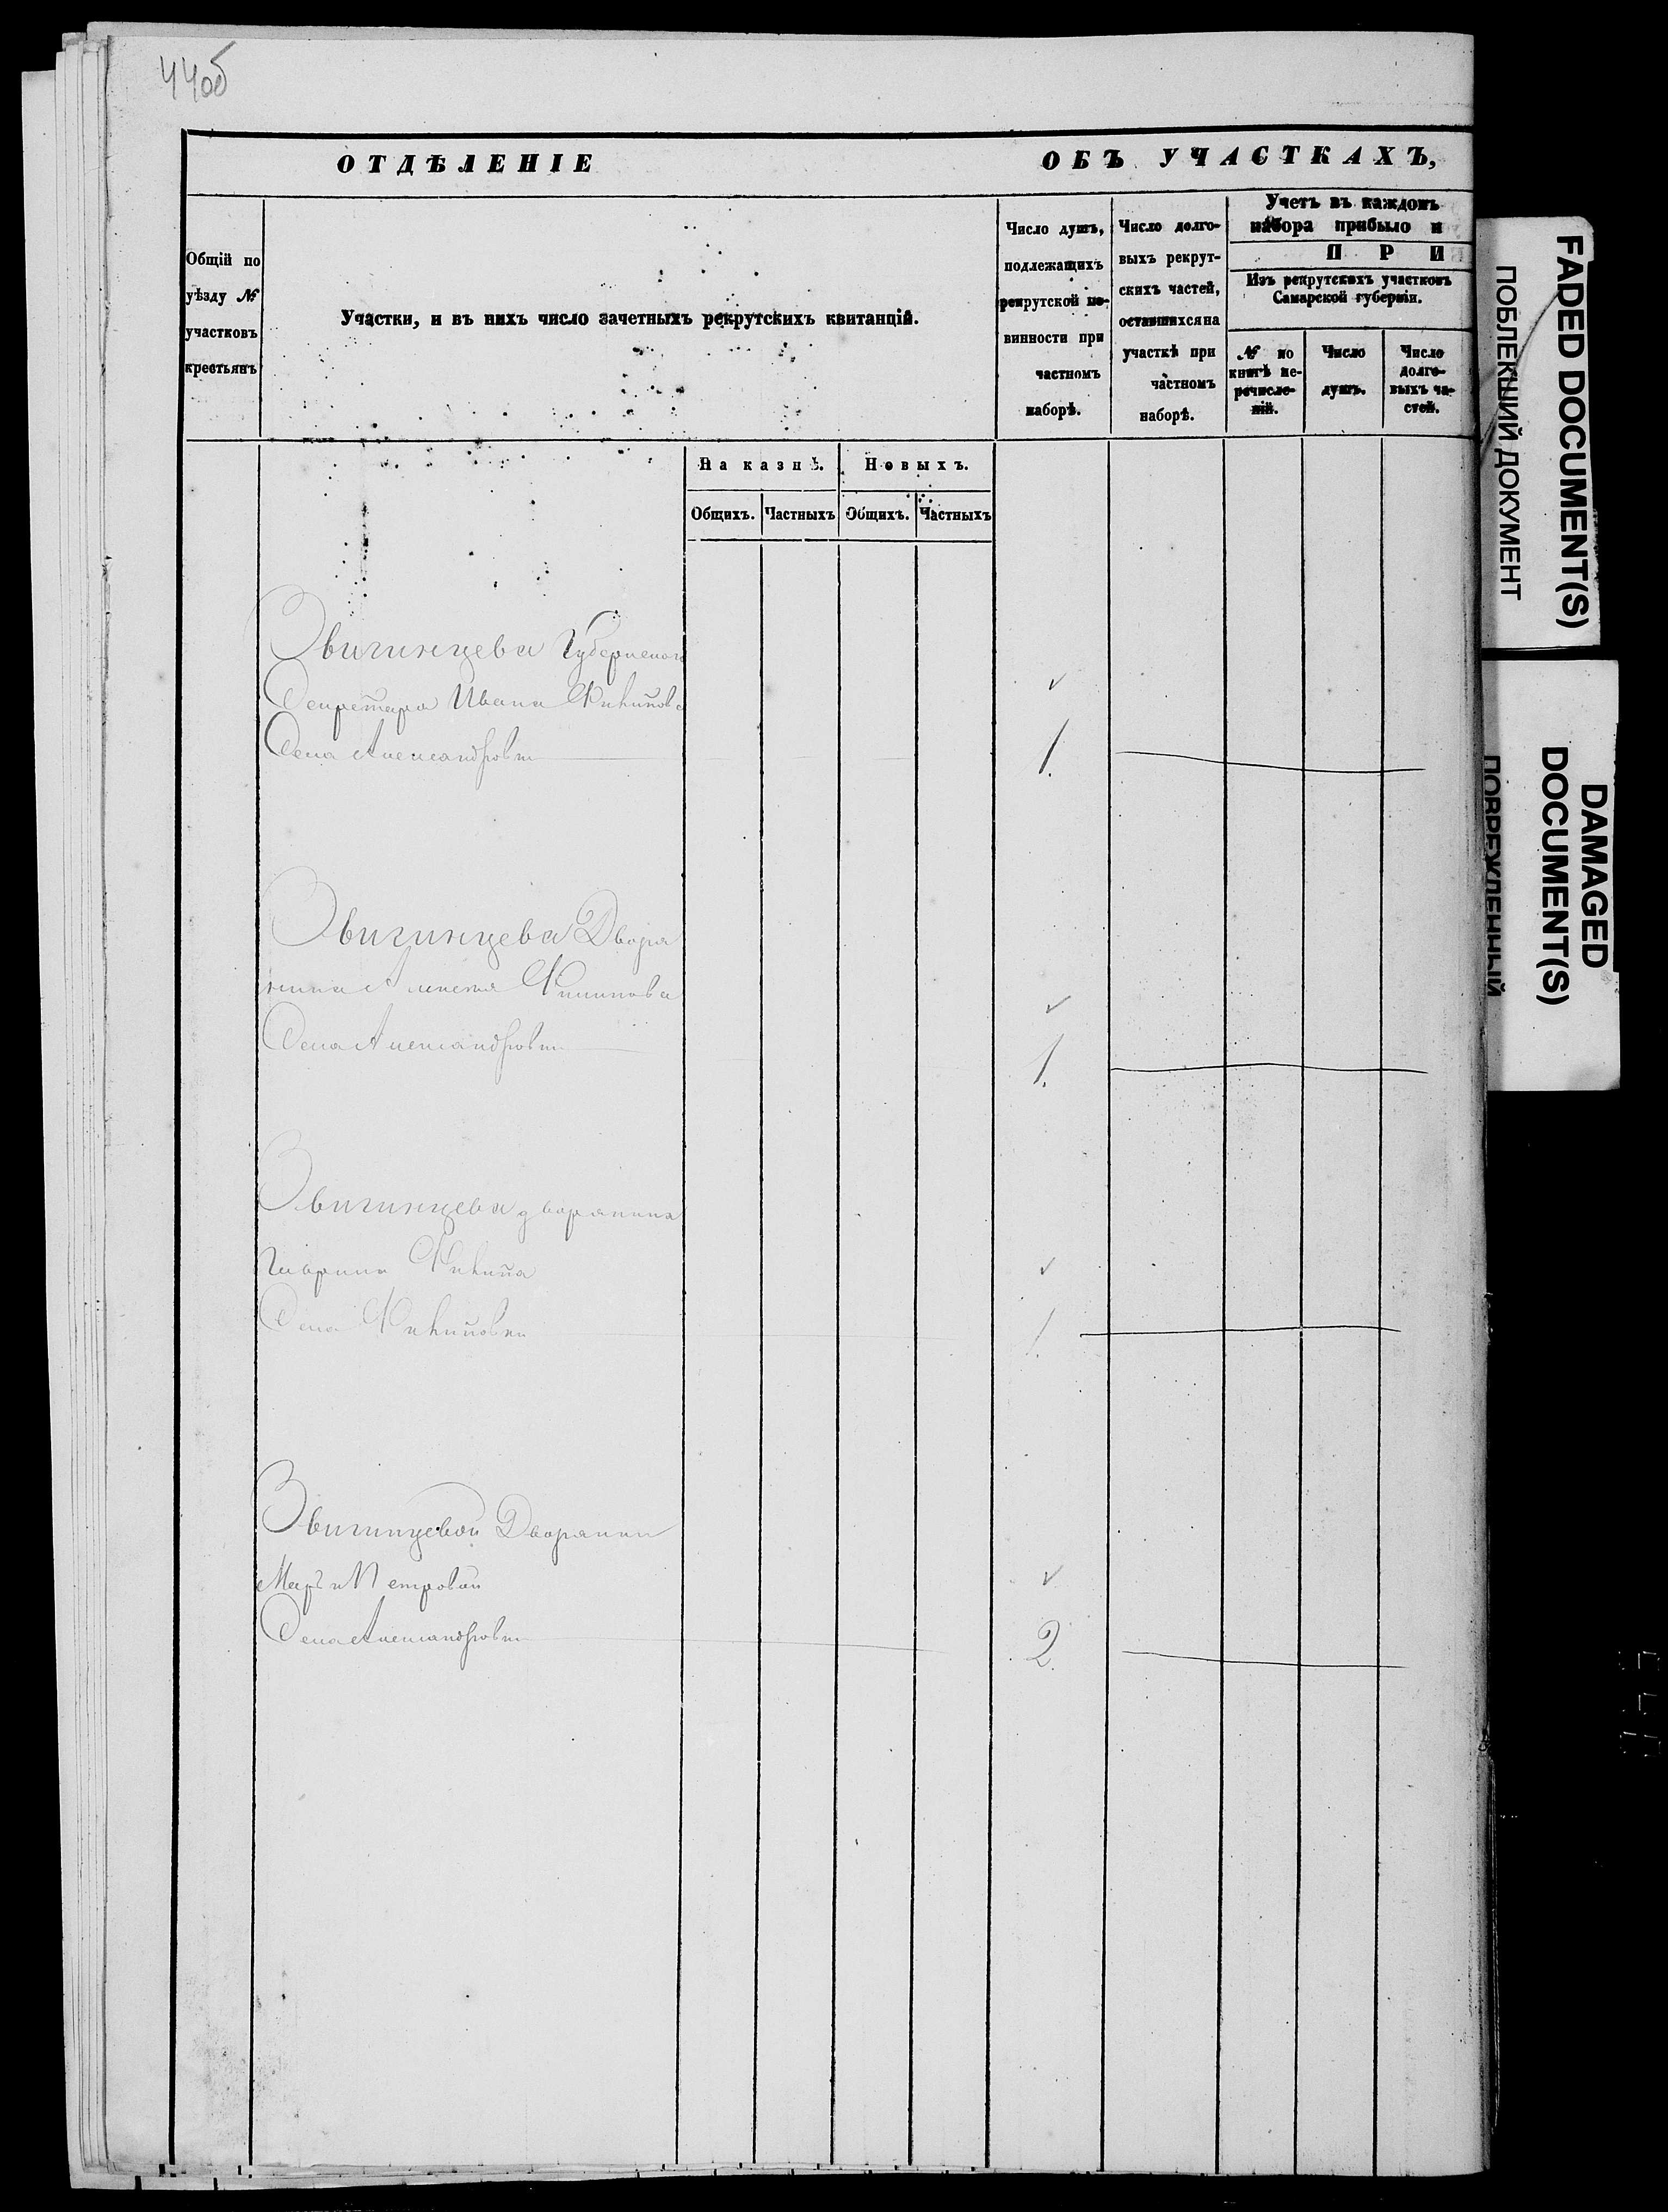 44об
ОТДѢЛЕНІЕ ОБЪ УЧАСТКАХЪ,
Общій по
уѣзду №
участковъ
крестьянъ
Участки, и въ нихъ число зачетныхъ рекрутскихъ квитанцій.
Число душъ,
подлежащихъ
рекрутской по-
винности при
частномъ
наборѣ.
Число долго-
выхъ рекрут-
скихъ частей,
оставшихся на
участкѣ при
частномъ
наборѣ.
Учетъ въ каждомъ
набора прибыло и
ПРИ
Изъ рекрутскихъ участковъ
Самарской губерніи.
№ по
книгѣ пе-
речисле-
ній.
Число
душъ.
Число
долго-
выхъ ча-
стей.
На казнѣ.
Новыхъ.
Общихъ.
Частныхъ
Общихъ.
Частныхъ
Звигинцева Губернскаго
Секретаря Ивана Филипова
Села Александровки
1.
Звигинцева Дворя
нина Алексея Филипова
Села Александровки
1.
Звигинцева дворянина
Гаврила Филипа
Села Филиповки
1.
Звигинцевой Дворянки
Марьи Петровой
Села Александровки
2.
FADED DOCUMENT(S)
ПОБЛЕКШИЙ ДОКУМЕНТ
DAMAGED
DOCUMENT(S)
ПОВРЕЖДЕННЫЙ